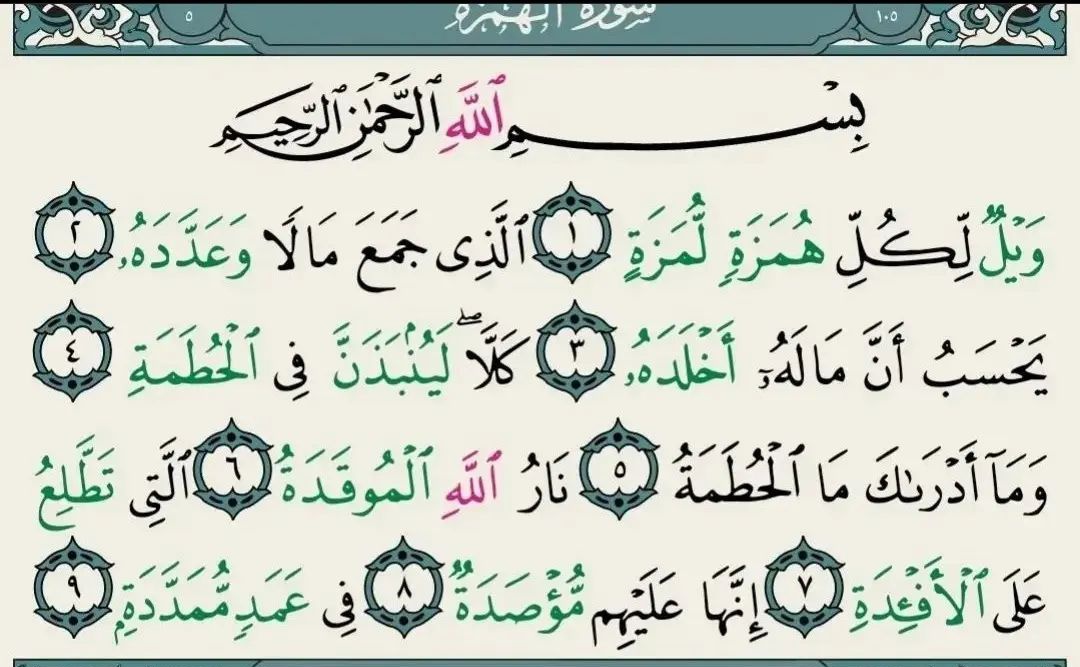 ٥ سورة الهمزة ١٠٥
بِسْمِ ٱللَّهِ ٱلرَّحْمَٰنِ ٱلرَّحِيمِ
وَيْلٌ لِّكُلِّ هُمَزَةٍ لُّمَزَةٍ ١ ٱلَّذِى جَمَعَ مَالًا وَعَدَّدَهُۥ ٢
يَحْسَبُ أَنَّ مَالَهُۥٓ أَخْلَدَهُۥ ٣ كَلَّا ۖ لَيُنۢبَذَنَّ فِى ٱلْحُطَمَةِ ٤
وَمَآ أَدْرَىٰكَ مَا ٱلْحُطَمَةُ ٥ نَارُ ٱللَّهِ ٱلْمُوقَدَةُ ٦ ٱلَّتِى تَطَّلِعُ
عَلَى ٱلْأَفْـِٔدَةِ ٧ إِنَّهَا عَلَيْهِم مُّؤْصَدَةٌ ٨ فِى عَمَدٍ مُّمَدَّدَةٍۭ ٩